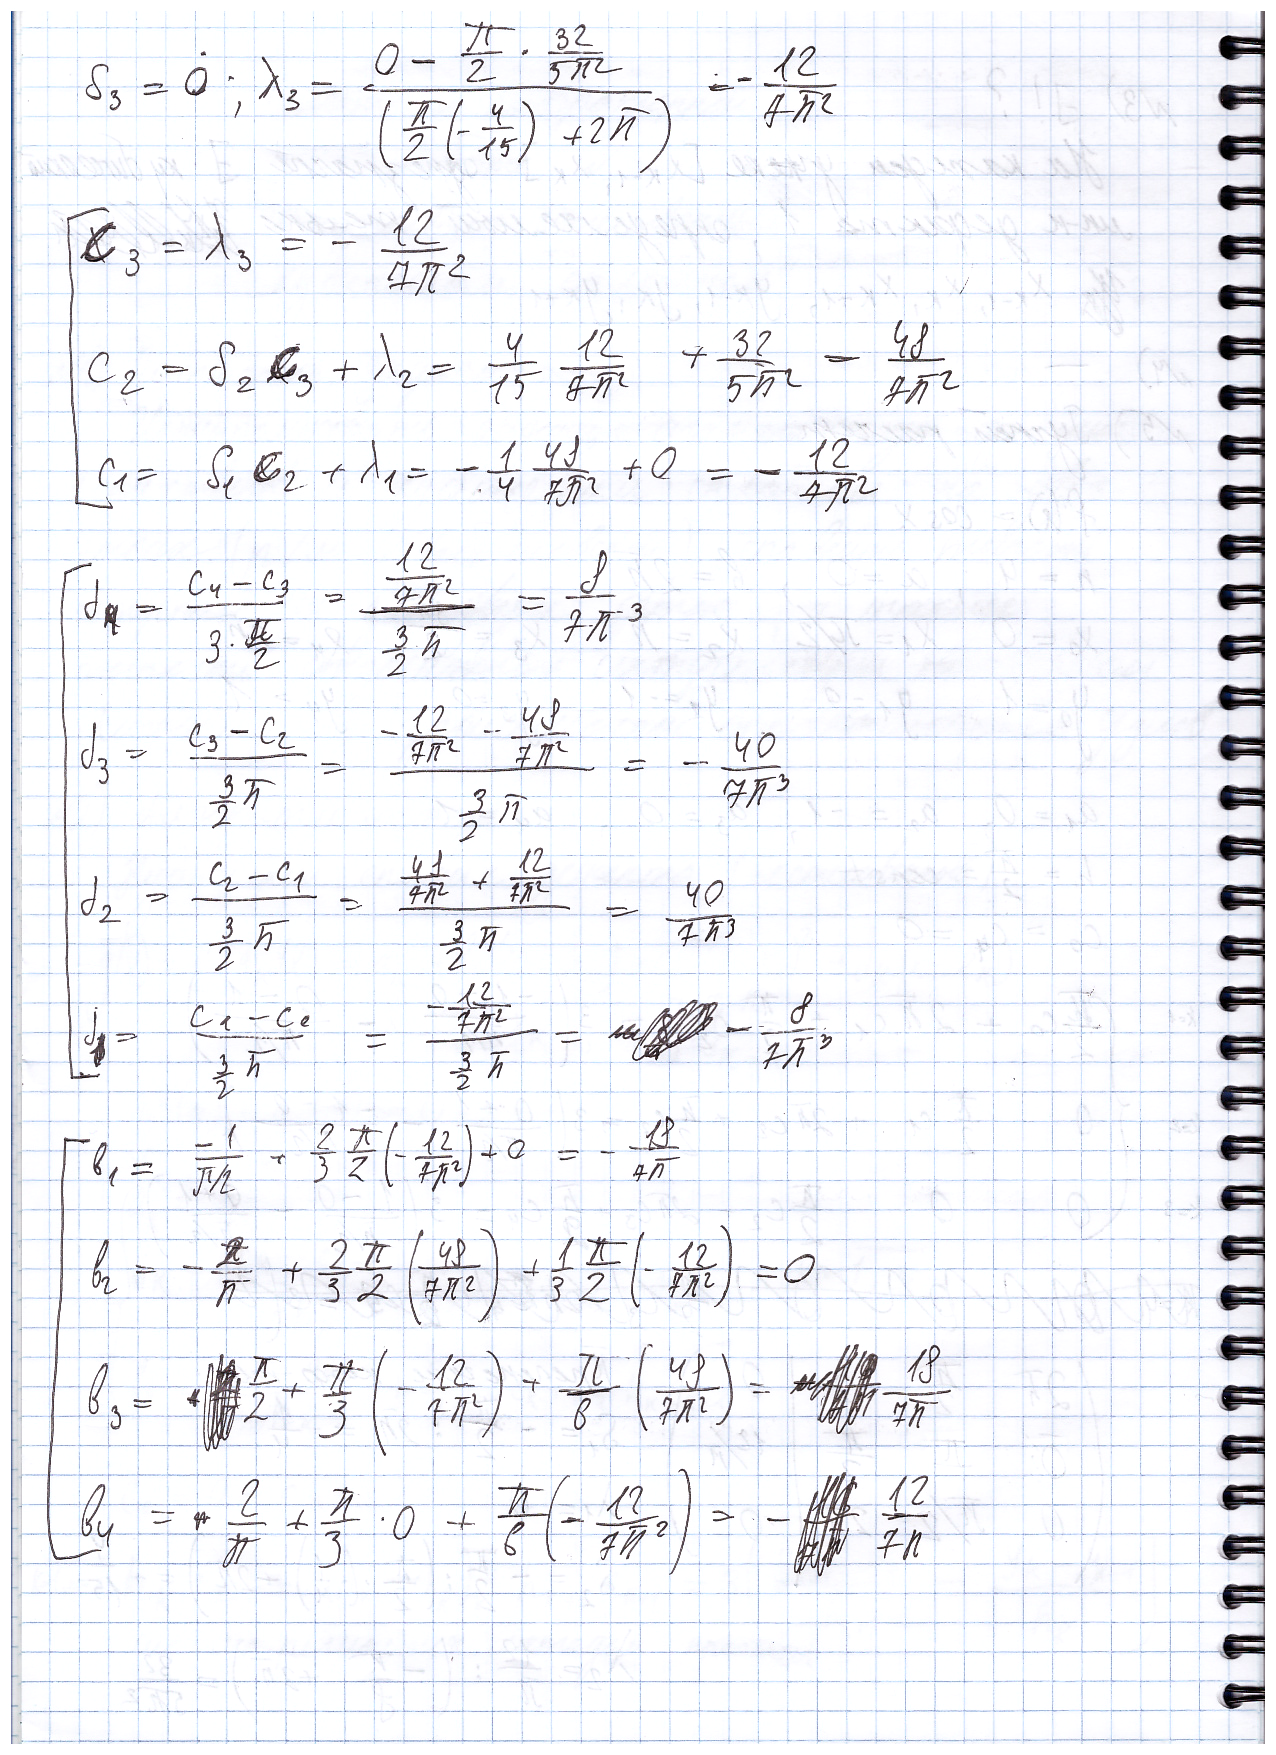 δ₃ = 0 ; λ₃ = (0 - π/2 · 32/(5π²)) / (π/2 (-4/15) + 2π) = - 12/(7π²)
c₃ = λ₃ = - 12/(7π²)
c₂ = δ₂ c₃ + λ₂ = 4/15 12/(7π²) + 32/(5π²) = 48/(7π²)
c₁ = δ₁ c₂ + λ₁ = - 1/4 48/(7π²) + 0 = - 12/(7π²)
d₄ = (c₄ - c₃)/(3 · π/2) = (12/(7π²))/(3/2 π) = 8/(7π³)
d₃ = (c₃ - c₂)/(3/2 π) = (- 12/(7π²) - 48/(7π²))/(3/2 π) = - 40/(7π³)
d₂ = (c₂ - c₁)/(3/2 π) = (48/(7π²) + 12/(7π²))/(3/2 π) = 40/(7π³)
d₁ = (c₁ - c₀)/(3/2 π) = (- 12/(7π²))/(3/2 π) = - 8/(7π³)
b₁ = -1/(π/2) + 2/3 π/2 (- 12/(7π²)) + 0 = - 18/(7π)
b₂ = - 2/π + 2/3 π/2 (48/(7π²)) + 1/3 π/2 (- 12/(7π²)) = 0
b₃ = π/2 + π/3 (- 12/(7π²)) + π/6 (48/(7π²)) = 18/(7π)
b₄ = 2/π + π/3 · 0 + π/6 (- 12/(7π²)) = - 12/(7π)